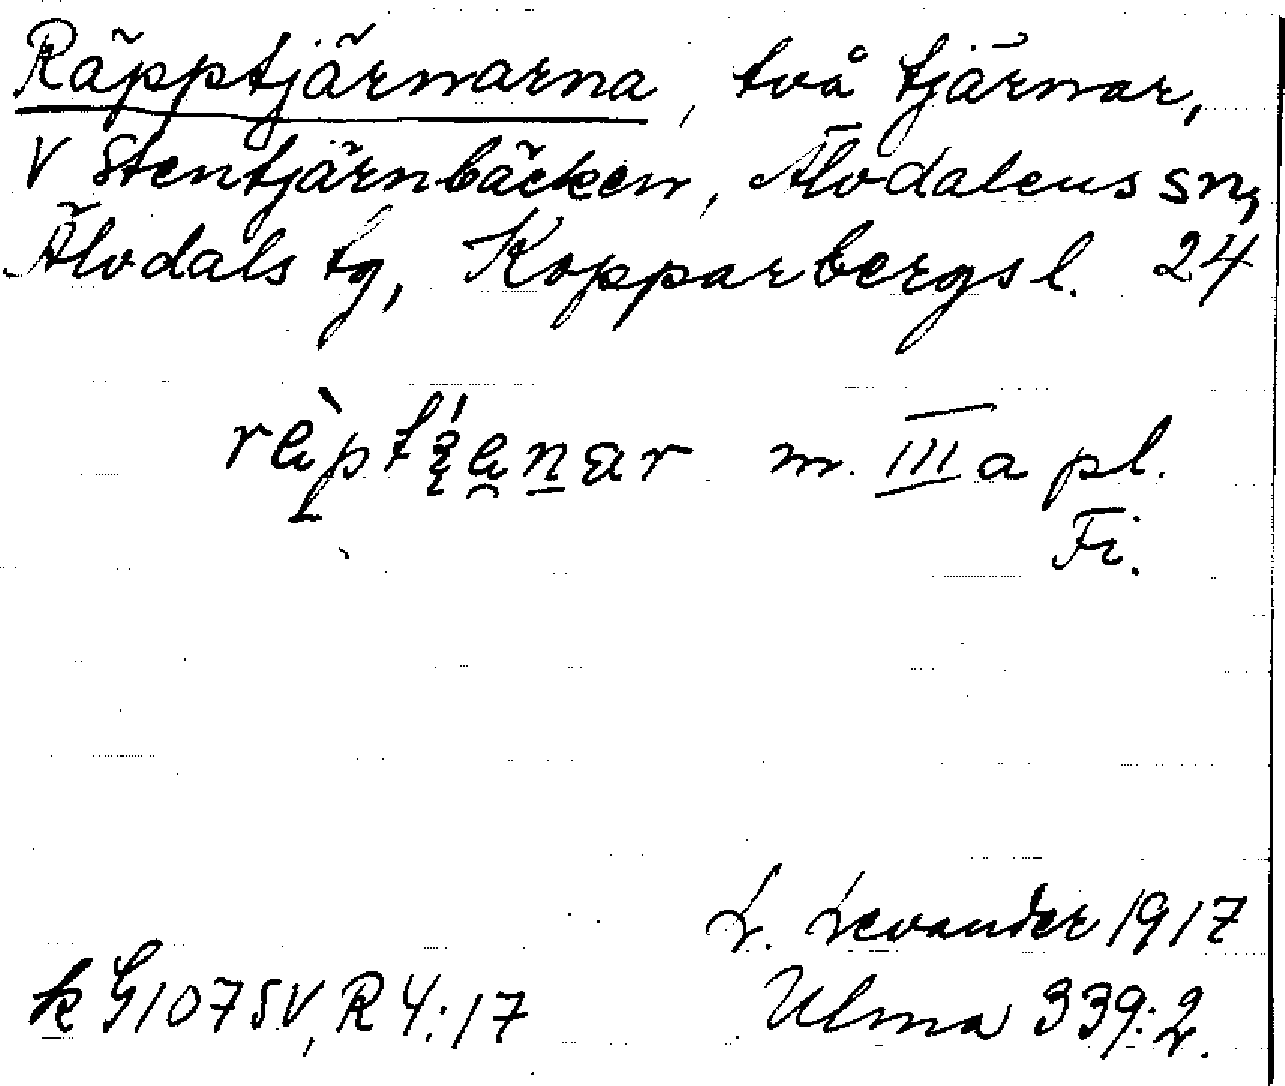 Räpptjärnarna, två tjärnar,
V Stentjärnbäcken, Älvdalens sn,
Älvdals tg, Kopparbergs l. 24
m. III a pl.
Fi.
L. Levander 1917
k G1075V, R4:17 Ulma 339:2.